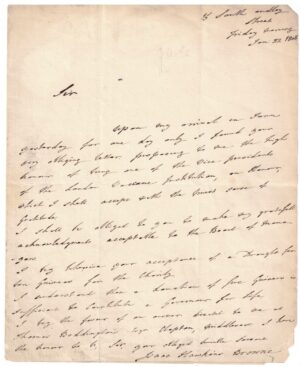 South Audley
Street
Friday
Jan 22 1808
Sir
Upon my arrival in Town
yesterday for one day only I found your
very obliging letter proposing to me the high
honour of being one of the Vice presidents
of the London Vaccine Institution, an Honour,
which I shall accept with the truest sense of
gratitude
I shall be obliged to you to make my grateful
acknowledgments acceptable to the Board of Mana
gers
I beg your acceptance of a Draught for
ten guineas for the Charity
I understand that a donation of five Guineas is
sufficient to constitute a Governor for life
I beg the favor of an answer to me at
Thomas Esqr Clapton, Middlesex I have
the honor to be Sir your obliged humble Servant
Isaac Hawkins Browne